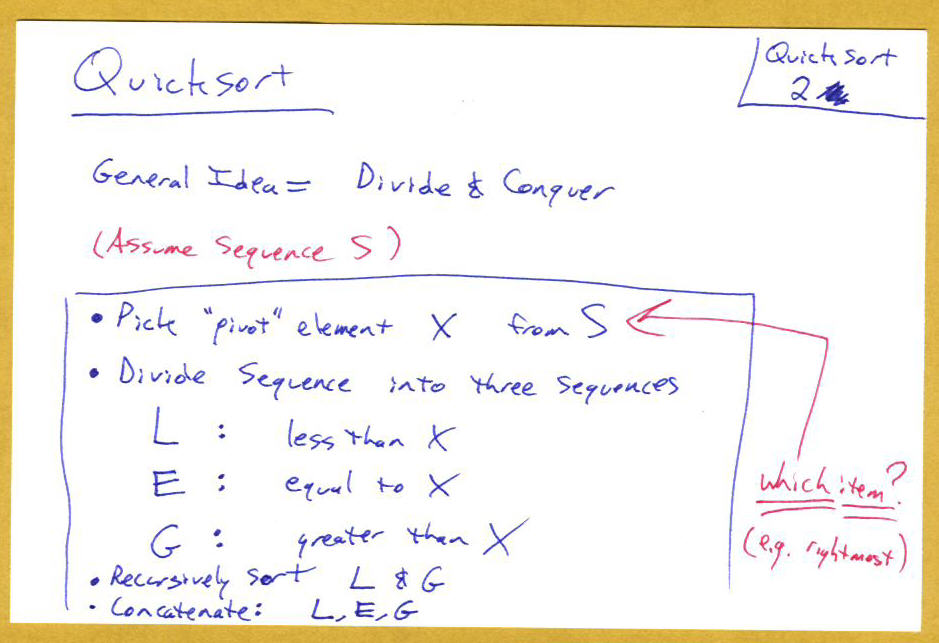 Quicksort
Quicksort
2
General Idea = Divide & Conquer
(Assume Sequence S)
• Pick "pivot" element X from S
• Divide Sequence into three sequences
L : less than X
E : equal to X
G : greater than X
• Recursively sort L & G
• Concatenate: L, E, G
which item?
(e.g. rightmost)